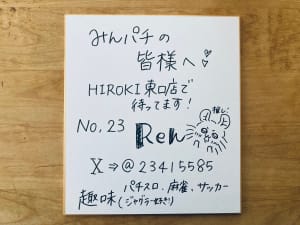 みんパチの
皆様へ!
HIROKI東口店で
待ってます!
No,23 Ren
推し
X⇒@23415585
趣味 パチスロ、麻雀、サッカー
(ジャグラー好き!)